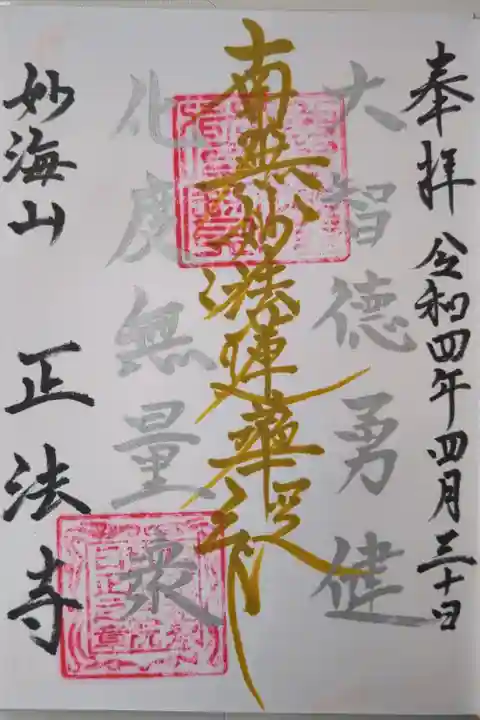 奉拝 令和四年四月三十日
大智徳勇健
南無妙法蓮華経
化度無量衆
妙海山 正法寺